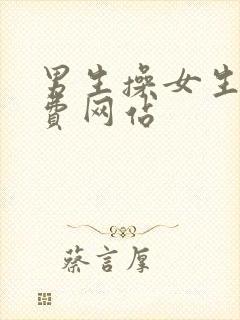 男生操女生
费网站
蔡言厚